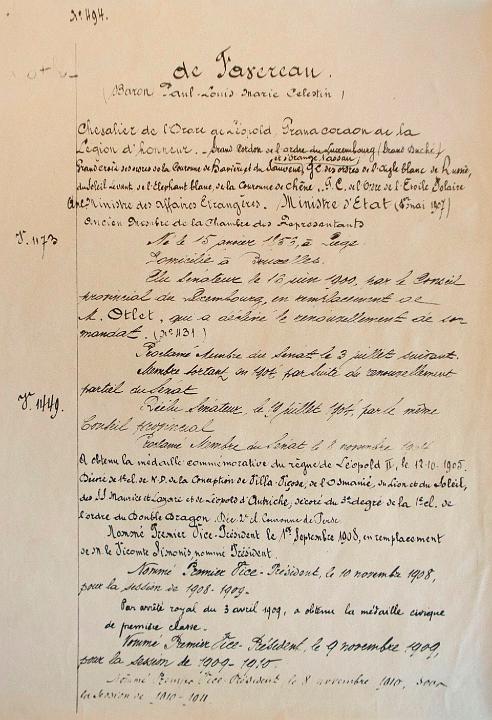 N° 494.
de Favereau.
(Baron Paul-Louis Marie Célestin)
Chevalier de l'Ordre de Léopold, Grand cordon de la
Légion d'honneur. - Grand Cordon de l'ordre du Luxembourg (Grand Duché)
et d'Orange Nassau,
Grand croix des ordres de la Couronne de Bavière et du Sauveur, G.C. des ordres de l'Aigle blanc de Russie,
du Soleil Levant, de l'Eléphant blanc, de la Couronne de Chêne, G.C. de l'Ordre de l'Etoile Polaire
Ministre des Affaires Etrangères. Ministre d'Etat (mai 1907)
Ancien Membre de la Chambre des Représentants
V. 1173
Né le 15 janvier à Liège
Domicilié à Bruxelles.
Elu Sénateur le 16 juin 1900, par le Conseil
provincial du Luxembourg, en remplacement de
M. Otlet, qui a décliné le renouvellement de son
mandat. (N° 1131)
Proclamé Membre du Sénat le 3 juillet suivant.
Membre sortant en 1904 par suite du renouvellement
partiel du Sénat
V. 1449.
Réélu Sénateur, le juillet 1904, par le même
Conseil provincial
Proclamé Membre du Sénat le 8 novembre 1904
A obtenu la médaille commémorative du règne de Léopold II, le 12-10-1905.
Décoré de 1e cl. de N.D. de la Conception de Villa-Viçose, de l'Osmanié, du Lion et du Soleil,
des SS Maurice et Lazare et de Léopold d'Autriche, décoré du 3e degré de la 1e cl. de
l'ordre du Double Dragon. Déc. 2e cl. Couronne de Perse.
Nommé Premier Vice-Président le 1er Septembre 1908, en remplacement
de M. le Vicomte Simonis, nommé Président.
Nommé Premier Vice-Président, le 10 novembre 1908,
pour la session de 1908-1909.
Par arrêté royal du 3 avril 1909, a obtenu la médaille civique
de première classe.
Nommé Premier Vice-Président, le 9 novembre 1909,
pour la session de 1909-1910.
Nommé Premier Vice-Président, le 8 novembre 1910, pour
la session de 1910-1911